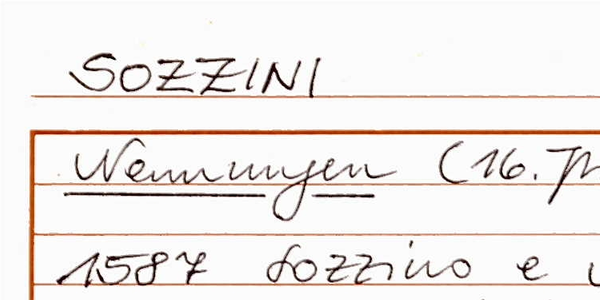 SOZZINI
Nennungen (16. Jh
1587 Sozzino e